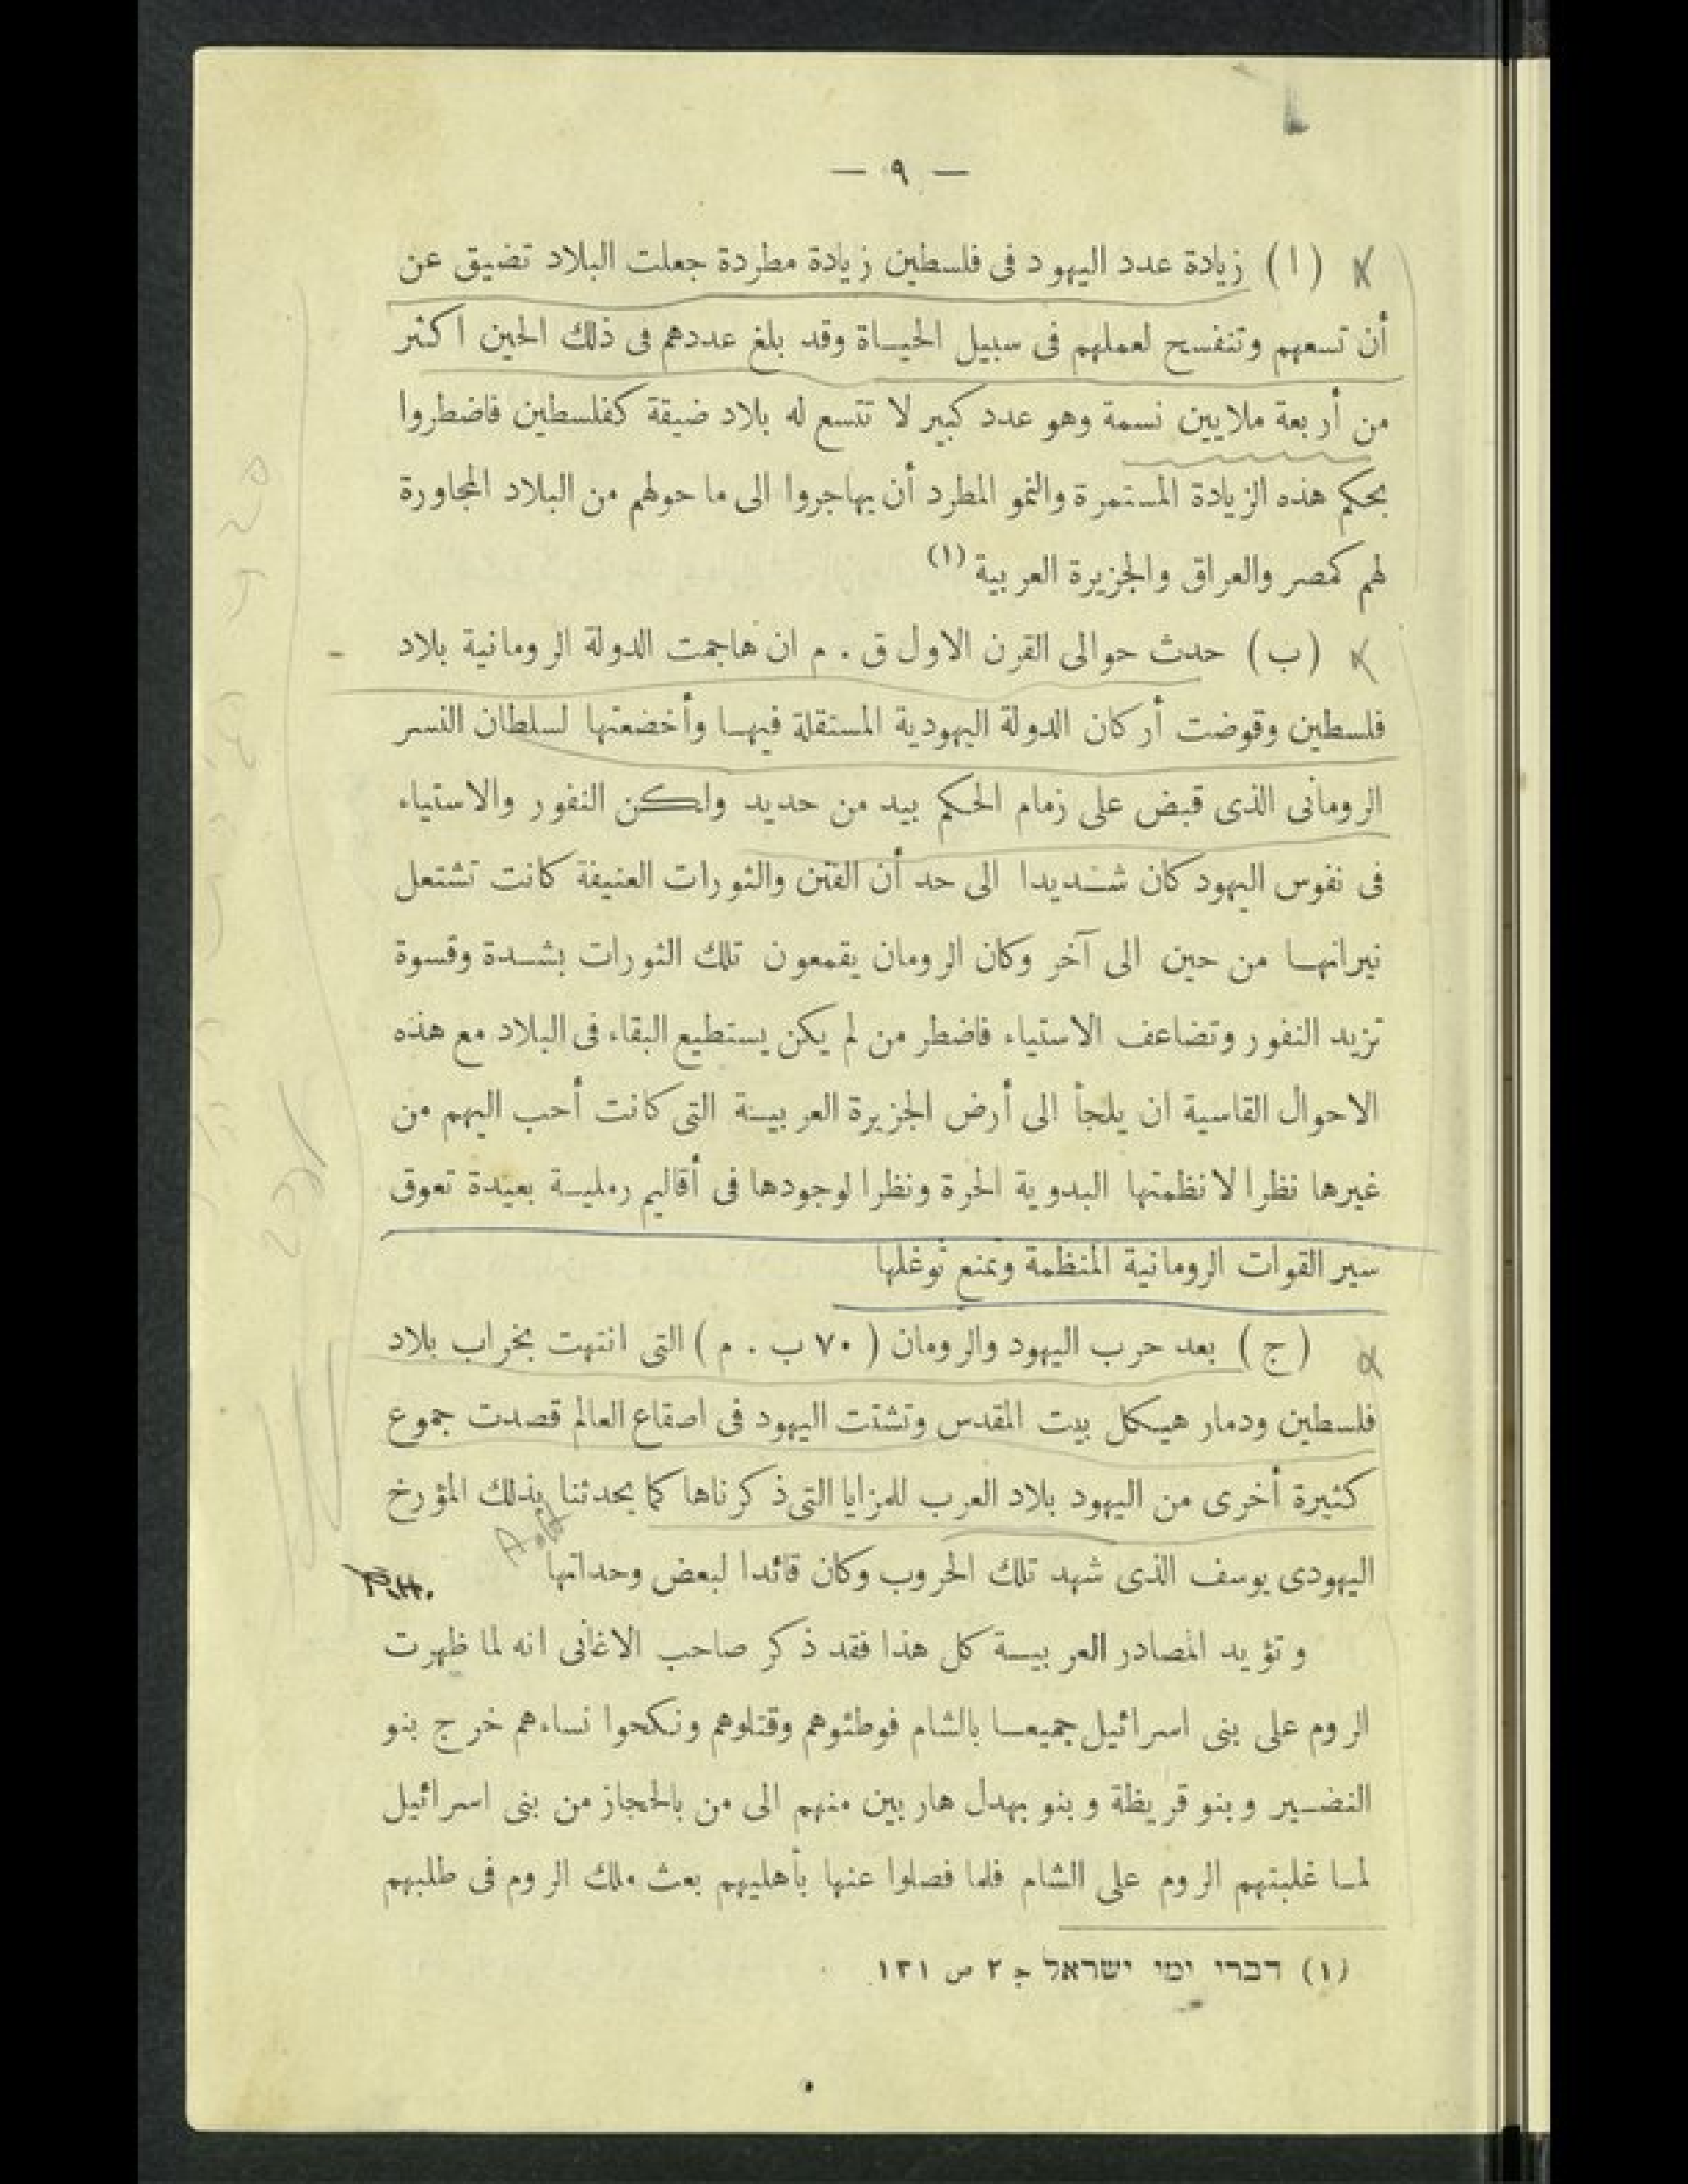 — ٩ —
(ا) زيادة عدد اليهود فى فلسطين زيادة مطردة جعلت البلاد تضيق عن
أن تسعهم وتنفسح لعملهم فى سبيل الحياة وقد بلغ عددهم فى ذلك الحين اكثر
من أربعة ملايين نسمة وهو عدد كبير لا تتسع له بلاد ضيقة كفلسطين فاضطروا
بحكم هذه الزيادة المستمرة والنمو المطرد أن يهاجروا الى ما حولهم من البلاد المجاورة
لهم كمصر والعراق والجزيرة العربية (١)
(ب) حدث حوالى القرن الاول ق . م ان هاجمت الدولة الرومانية بلاد
فلسطين وقوضت أركان الدولة اليهودية المستقلة فيها وأخضعتها لسلطان النسر
الرومانى الذى قبض على زمام الحكم بيد من حديد ولكن النفور والاستياء
فى نفوس اليهود كان شديدا الى حد أن الفتن والثورات العنيفة كانت تشتعل
نيرانها من حين الى آخر وكان الرومان يقمعون تلك الثورات بشدة وقسوة
تزيد النفور وتضاعف الاستياء فاضطر من لم يكن يستطيع البقاء فى البلاد مع هذه
الاحوال القاسية ان يلجأ الى أرض الجزيرة العربية التى كانت أحب اليهم من
غيرها نظرا لانظمتها البدوية الحرة ونظرا لوجودها فى أقاليم رملية بعيدة تعوق
سير القوات الرومانية المنظمة وتمنع توغلها
(ج) بعد حرب اليهود والرومان (٧٠ ب . م) التى انتهت بخراب بلاد
فلسطين ودمار هيكل بيت المقدس وتشتت اليهود فى اصقاع العالم قصدت جموع
كثيرة أخرى من اليهود بلاد العرب للمزايا التى ذكرناها كما يحدثنا بذلك المؤرخ
اليهودى يوسف الذى شهد تلك الحروب وكان قائدا لبعض وحداتها
وتؤيد المصادر العربية كل هذا فقد ذكر صاحب الاغانى انه لما ظهرت
الروم على بنى اسرائيل جميعا بالشام فوطئوهم وقتلوهم ونكحوا نساءهم خرج بنو
النضير وبنو قريظة وبنو بهدل هاربين منهم الى من بالحجاز من بنى اسرائيل
لما غلبتهم الروم على الشام فلما فصلوا عنها بأهليهم بعث ملك الروم فى طلبهم
(١) דברי ימי ישראל ج ٢ ص ١٣١